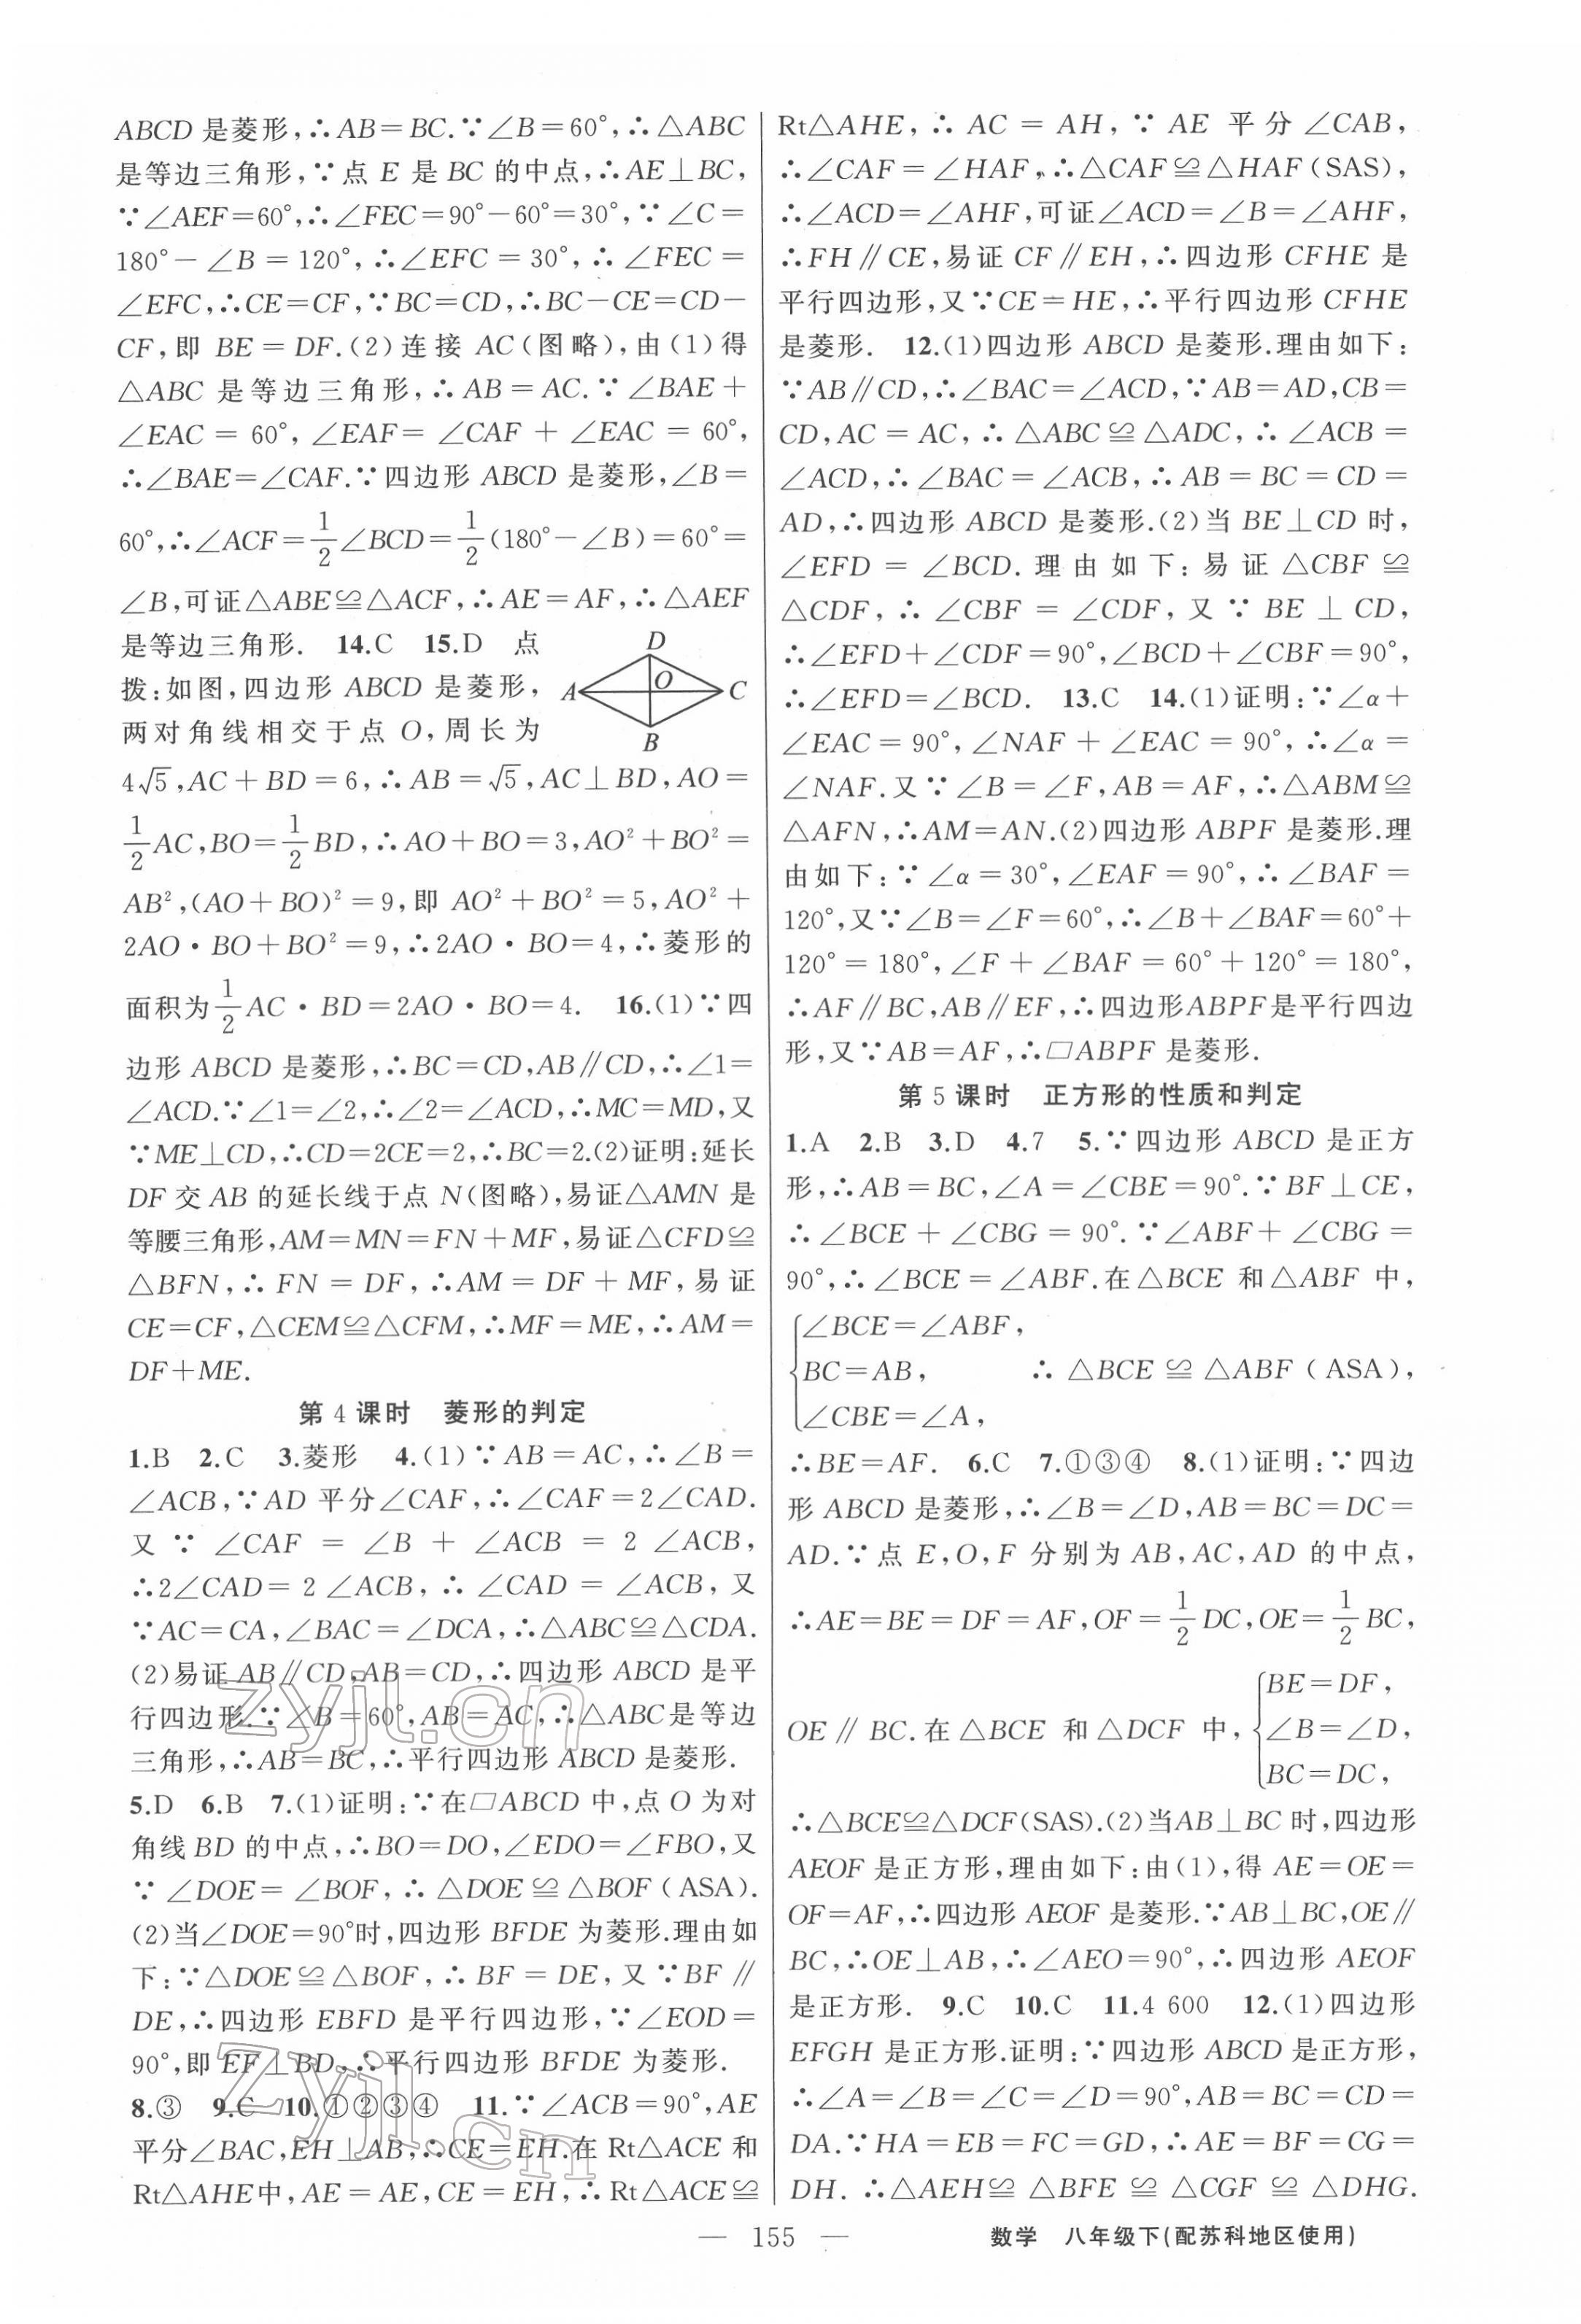 ABCD 是菱形,∴AB=BC.∵∠B=60°,∴△ABC
是等边三角形,∵点 E 是 BC 的中点,∴AE⊥BC,
∵∠AEF=60°,∴∠FEC=90°-60°=30°,∵∠C=
180°-∠B=120°,∴∠EFC=30°,∴∠FEC=
∠EFC,∴CE=CF,∵BC=CD,∴BC-CE=CD-
CF,即 BE=DF.(2)连接 AC(图略),由(1)得
△ABC 是等边三角形,∴AB=AC.∵∠BAE+
∠EAC=60°,∠EAF=∠CAF+∠EAC=60°,
∴∠BAE=∠CAF.∵四边形 ABCD 是菱形,∠B=
60°,∴∠ACF=1/2∠BCD=1/2(180°-∠B)=60°=
∠B,可证△ABE≌△ACF,∴AE=AF,∴△AEF
是等边三角形. 14.C 15.D 点
拨:如图,四边形 ABCD 是菱形,
两对角线相交于点 O,周长为
D
O
A
C
B
4√5,AC+BD=6,∴AB=√5,AC⊥BD,AO=
1/2AC,BO=1/2BD,∴AO+BO=3,AO²+BO²=
AB²,(AO+BO)²=9,即 AO²+BO²=5,AO²+
2AO·BO+BO²=9,∴2AO·BO=4,∴菱形的
面积为1/2AC·BD=2AO·BO=4. 16.(1)∵四
边形 ABCD 是菱形,∴BC=CD,AB∥CD,∴∠1=
∠ACD.∵∠1=∠2,∴∠2=∠ACD,∴MC=MD,又
∵ME⊥CD,∴CD=2CE=2,∴BC=2.(2)证明:延长
DF 交 AB 的延长线于点 N(图略),易证△AMN 是
等腰三角形,AM=MN=FN+MF,易证△CFD≌
△BFN,∴FN=DF,∴AM=DF+MF,易证
CE=CF,△CEM≌△CFM,∴MF=ME,∴AM=
DF+ME.
第 4 课时 菱形的判定
1.B 2.C 3.菱形 4.(1)∵AB=AC,∴∠B=
∠ACB,∵AD 平分∠CAF,∴∠CAF=2∠CAD.
又∵∠CAF=∠B+∠ACB=2∠ACB,
∴2∠CAD=2∠ACB,∴∠CAD=∠ACB,又
∵AC=CA,∠BAC=∠DCA,∴△ABC≌△CDA.
(2)易证 AB∥CD,AB=CD,∴四边形 ABCD 是平
行四边形.∵∠B=60°,AB=AC,∴△ABC是等边
三角形,∴AB=BC,∴平行四边形 ABCD 是菱形.
5.D 6.B 7.(1)证明:∵在▱ABCD 中,点 O 为对
角线 BD 的中点,∴BO=DO,∠EDO=∠FBO,又
∵∠DOE=∠BOF,∴△DOE≌△BOF(ASA).
(2)当∠DOE=90°时,四边形 BFDE 为菱形.理由如
下:∵△DOE≌△BOF,∴BF=DE,又∵BF∥
DE,∴四边形 EBFD 是平行四边形,∵∠EOD=
90°,即 EF⊥BD,∴平行四边形 BFDE 为菱形.
8.③ 9.C 10.①②③④ 11.∵∠ACB=90°,AE
平分∠BAC,EH⊥AB,∴CE=EH.在 Rt△ACE 和
Rt△AHE中,AE=AE,CE=EH,∴Rt△ACE≌
Rt△AHE,∴AC=AH,∵AE 平分∠CAB,
∴∠CAF=∠HAF,∴△CAF≌△HAF(SAS),
∴∠ACD=∠AHF,可证∠ACD=∠B=∠AHF,
∴FH∥CE,易证 CF∥EH,∴四边形 CFHE 是
平行四边形,又∵CE=HE,∴平行四边形 CFHE
是菱形. 12.(1)四边形 ABCD 是菱形.理由如下:
∵AB∥CD,∴∠BAC=∠ACD,∵AB=AD,CB=
CD,AC=AC,∴△ABC≌△ADC,∴∠ACB=
∠ACD,∴∠BAC=∠ACB,∴AB=BC=CD=
AD,∴四边形 ABCD 是菱形.(2)当 BE⊥CD 时,
∠EFD=∠BCD.理由如下:易证△CBF≌
△CDF,∴∠CBF=∠CDF,又∵BE⊥CD,
∴∠EFD+∠CDF=90°,∠BCD+∠CBF=90°,
∴∠EFD=∠BCD. 13.C 14.(1)证明:∵∠α+
∠EAC=90°,∠NAF+∠EAC=90°,∴∠α=
∠NAF.又∵∠B=∠F,AB=AF,∴△ABM≌
△AFN,∴AM=AN.(2)四边形 ABPF 是菱形.理
由如下:∵∠α=30°,∠EAF=90°,∴∠BAF=
120°,又∵∠B=∠F=60°,∴∠B+∠BAF=60°+
120°=180°,∠F+∠BAF=60°+120°=180°,
∴AF∥BC,AB∥EF,∴四边形ABPF是平行四边
形,又∵AB=AF,∴▱ABPF 是菱形.
第 5 课时 正方形的性质和判定
1.A 2.B 3.D 4.7 5.∵四边形 ABCD 是正方
形,∴AB=BC,∠A=∠CBE=90°.∵BF⊥CE,
∴∠BCE+∠CBG=90°.∵∠ABF+∠CBG=
90°,∴∠BCE=∠ABF.在△BCE 和△ABF 中,
∠BCE=∠ABF,
BC=AB, ∴△BCE≌△ABF(ASA),
∠CBE=∠A,
∴BE=AF. 6.C 7.①③④ 8.(1)证明:∵四边
形 ABCD 是菱形,∴∠B=∠D,AB=BC=DC=
AD.∵点 E,O,F 分别为 AB,AC,AD 的中点,
∴AE=BE=DF=AF,OF=1/2DC,OE=1/2BC,
BE=DF,
OE∥BC.在△BCE 和△DCF 中, ∠B=∠D,
BC=DC,
∴△BCE≌△DCF(SAS).(2)当AB⊥BC 时,四边形
AEOF 是正方形,理由如下:由(1),得 AE=OE=
OF=AF,∴四边形 AEOF 是菱形.∵AB⊥BC,OE∥
BC,∴OE⊥AB,∴∠AEO=90°,∴四边形 AEOF
是正方形. 9.C 10.C 11.4 600 12.(1)四边形
EFGH 是正方形.证明:∵四边形 ABCD 是正方形,
∴∠A=∠B=∠C=∠D=90°,AB=BC=CD=
DA.∵HA=EB=FC=GD,∴AE=BF=CG=
DH. ∴△AEH≌△BFE≌△CGF≌△DHG.
— 155 — 数学 八年级下(配苏科地区使用)
zyjl.cn
zyjl.cn